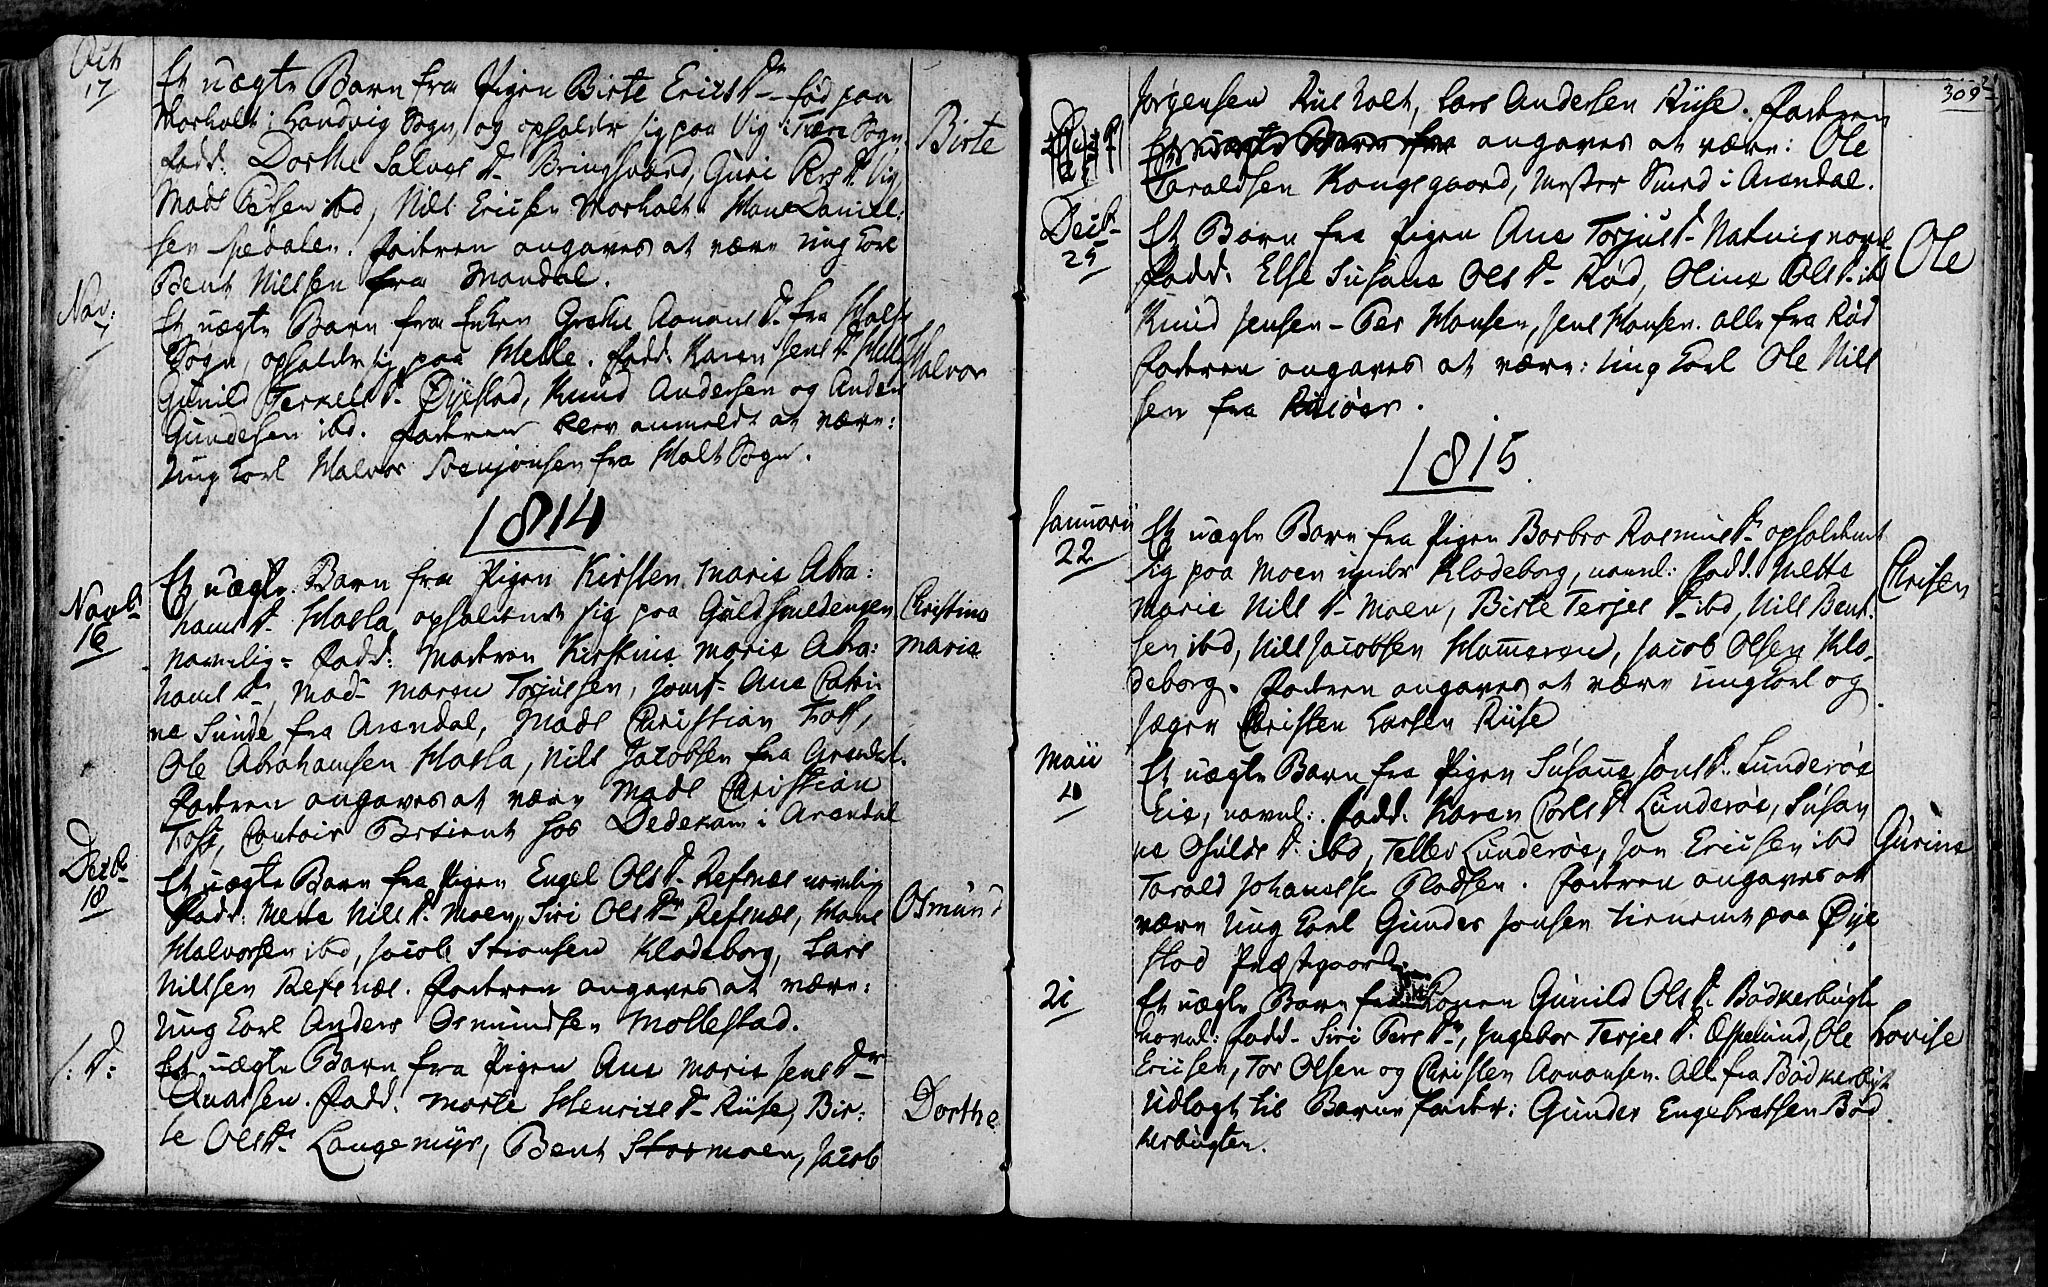 Oct 17
Et uægte Barn fra Pigen Birte Erics D. fød paa
Morholt i Landvig Sogn, og opholder sig paa Vig i Fiære Sogn
Birte
Fadd: Dorthe Salves D. Bringsværd, Guri Pers D. Vig,
Mads Persen ibd, Nils Ericsen Morholt. Hans Daniel:
sen Spedalen. Faderen angaves at være Ung Karl
Bent Nilssen fra Mandal.
Nov: 7
Et uægte Barn fra Enken Grethe Aanons D. fra Holts
Sogn, opholder sig paa Helle. Fadd: Karen Jens D. Helle
Halvor
Gunild Terkels D. Øyestad, Knud Andersen og Anders
Gundersen ibd. Faderen blev anmeldt at være:
Ung Karl Halvor Stenjonsen fra Holt Sogn.
1814
Novb. 16
Et uægte Barn fra Pigen Kirsten Marie Abra:
hams D. Hasla opholdende sig paa Guldsmedengen
Christine
navnlig = Fadd: Moderen Kirstine Marie Abra:
Maria
hams D., Mad. Maren Torjussen, Jomf. Ane Catri-
ne Sunde fra Arendal, Mads Christian Toft,
Ole Abrahamsen Hasla, Nils Jacobsen fra Arendal.
Faderen angaves at være Mads Christian
Toft, Contoir Betient hos Dedekam i Arendal
Decb. 18
Et uægte Barn fra Pigen Engel Ols D. Refsnæs navnlig
Osmund
Fadd: Mette Nils D. Moen, Siri Ols D. Refsnæs, Hans
Halvorsen ibd, Jacob Stiansen Klodeborg, Lars
Nilsen Refsnæs. Faderen angaves at være:
Ung Karl Anders Osmundsen Mollestad.
s: D:
Et uægte Barn fra Pigen Ane Marie Jens D.
Fadd. Marte Henrics D. Riise, Bir:
Dorthe
te Ols D. Langemyr, Bent Stormoen, Jacob
309
Jørgensen Rusholt, Lars Andersen Riise. Faderen
angaves at være: Ole
Taraldsen Kongsgaard, Mester Smed i Arendal.
Decb. 25
Et Barn fra Pigen Ane Torjus D. Natvig navnl
Ole
Fadd: Else Susane Ols D. Rød, Oline Ols D. ibd
Knud Jensen - Per Hansen, Jens Hansen. alle fra Rød
Faderen angaves at være: Ung Karl Ole Nils
sen fra Risøer.
1815
Januarii 22
Et uægte Barn fra Pigen Barbro Rasmus D. opholdende
sig paa Moen under Klodeborg, navnl: Fadd. Mette
Christen
Marie Nils D. Moen, Birte Terjes D. ibd, Nils Bent
sen ibd, Nils Jacobsen Hammeren, Jacob Olsen Klo-
deborg. Faderen angaves at være Ung Karl og
Jæger Christen Larsen Riise
Maii 4
Et uægte Barn fra Pigen Susanne Jons D. Lunderøe
Eie, navnl: Fadd. Karen Carls D. Lunderøe, Susan
ne Ohulds D. ibd, Tellev Lunderøe, Jon Ericsen ibd
Gurine
Tarald Johannesen Pladsen. Faderen angaves at
være Ung Karl Gunder Jonsen tienende paa Øye
stad Præstegaard.
21
Et uægte Barn fra Konen Gunild Ols D. Bødkerbugte
navnl: Fadd. Siri Pers D., Ingebor Terjes D. Espelund, Ole
Lovise
Ericsen, Tor Olsen og Christen Aanonsen. Alle fra Bødkerbugt
Udlagt til Barne fader: Gunder Engebretsen Bød
kerbugten.